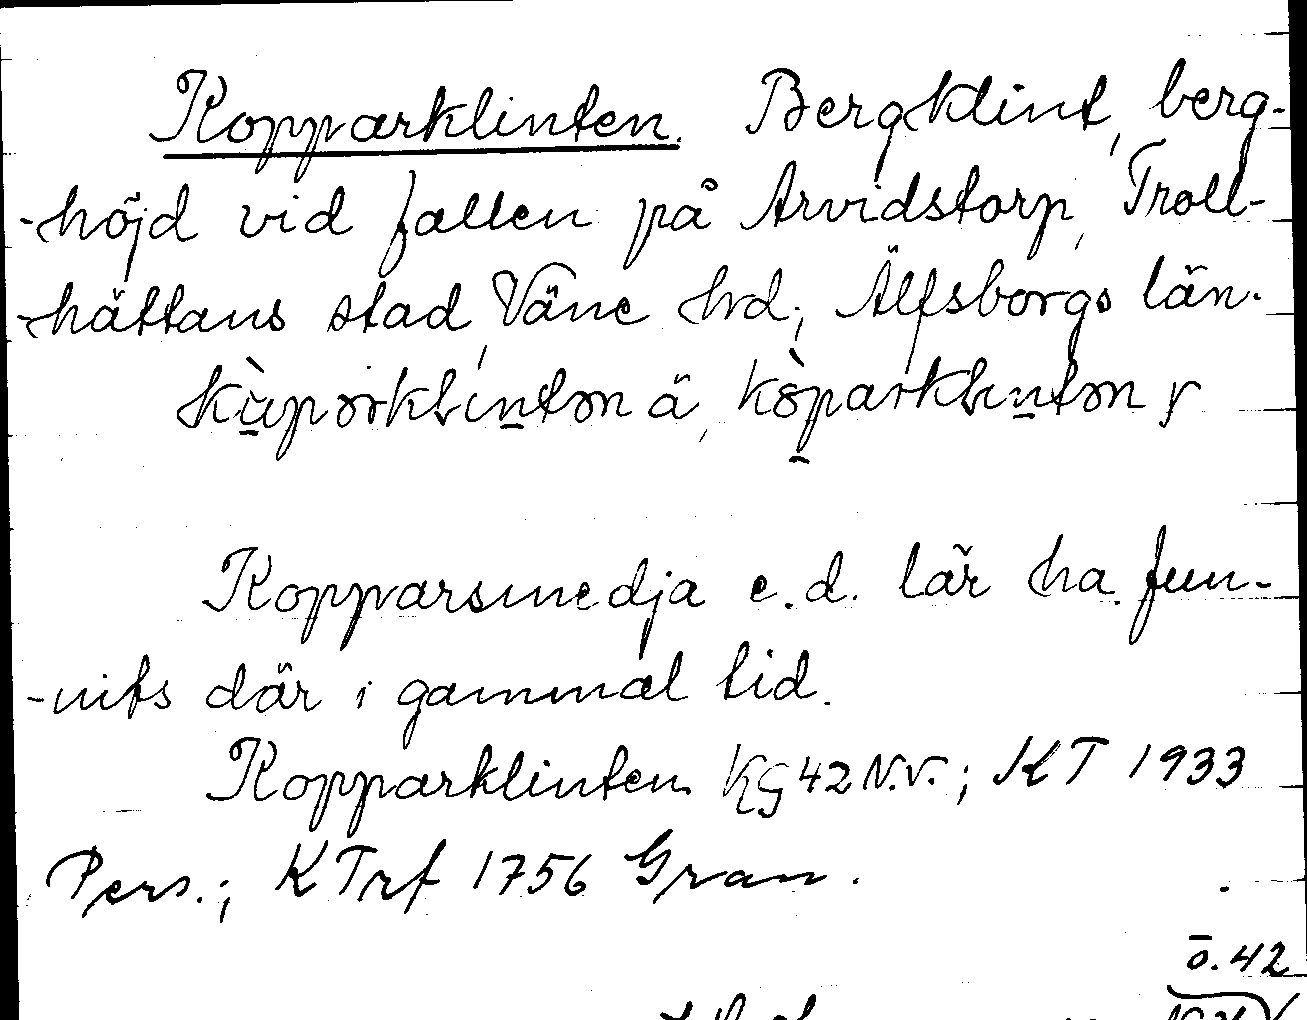 Kopparklinten. Bergklint, berg-
-höjd vid fallen på Arvidstorp, Troll-
-hättans stad, Väne hd., Älfsborgs län.
kùpərklintən ä, kòparklintən y
Kopparsmedja e.d. lär ha fun-
-nits där i gammal tid.
Kopparklinten KG 42 N.V.; KT 1933
Pers.; KTrf 1756 Gran.
ō. 42